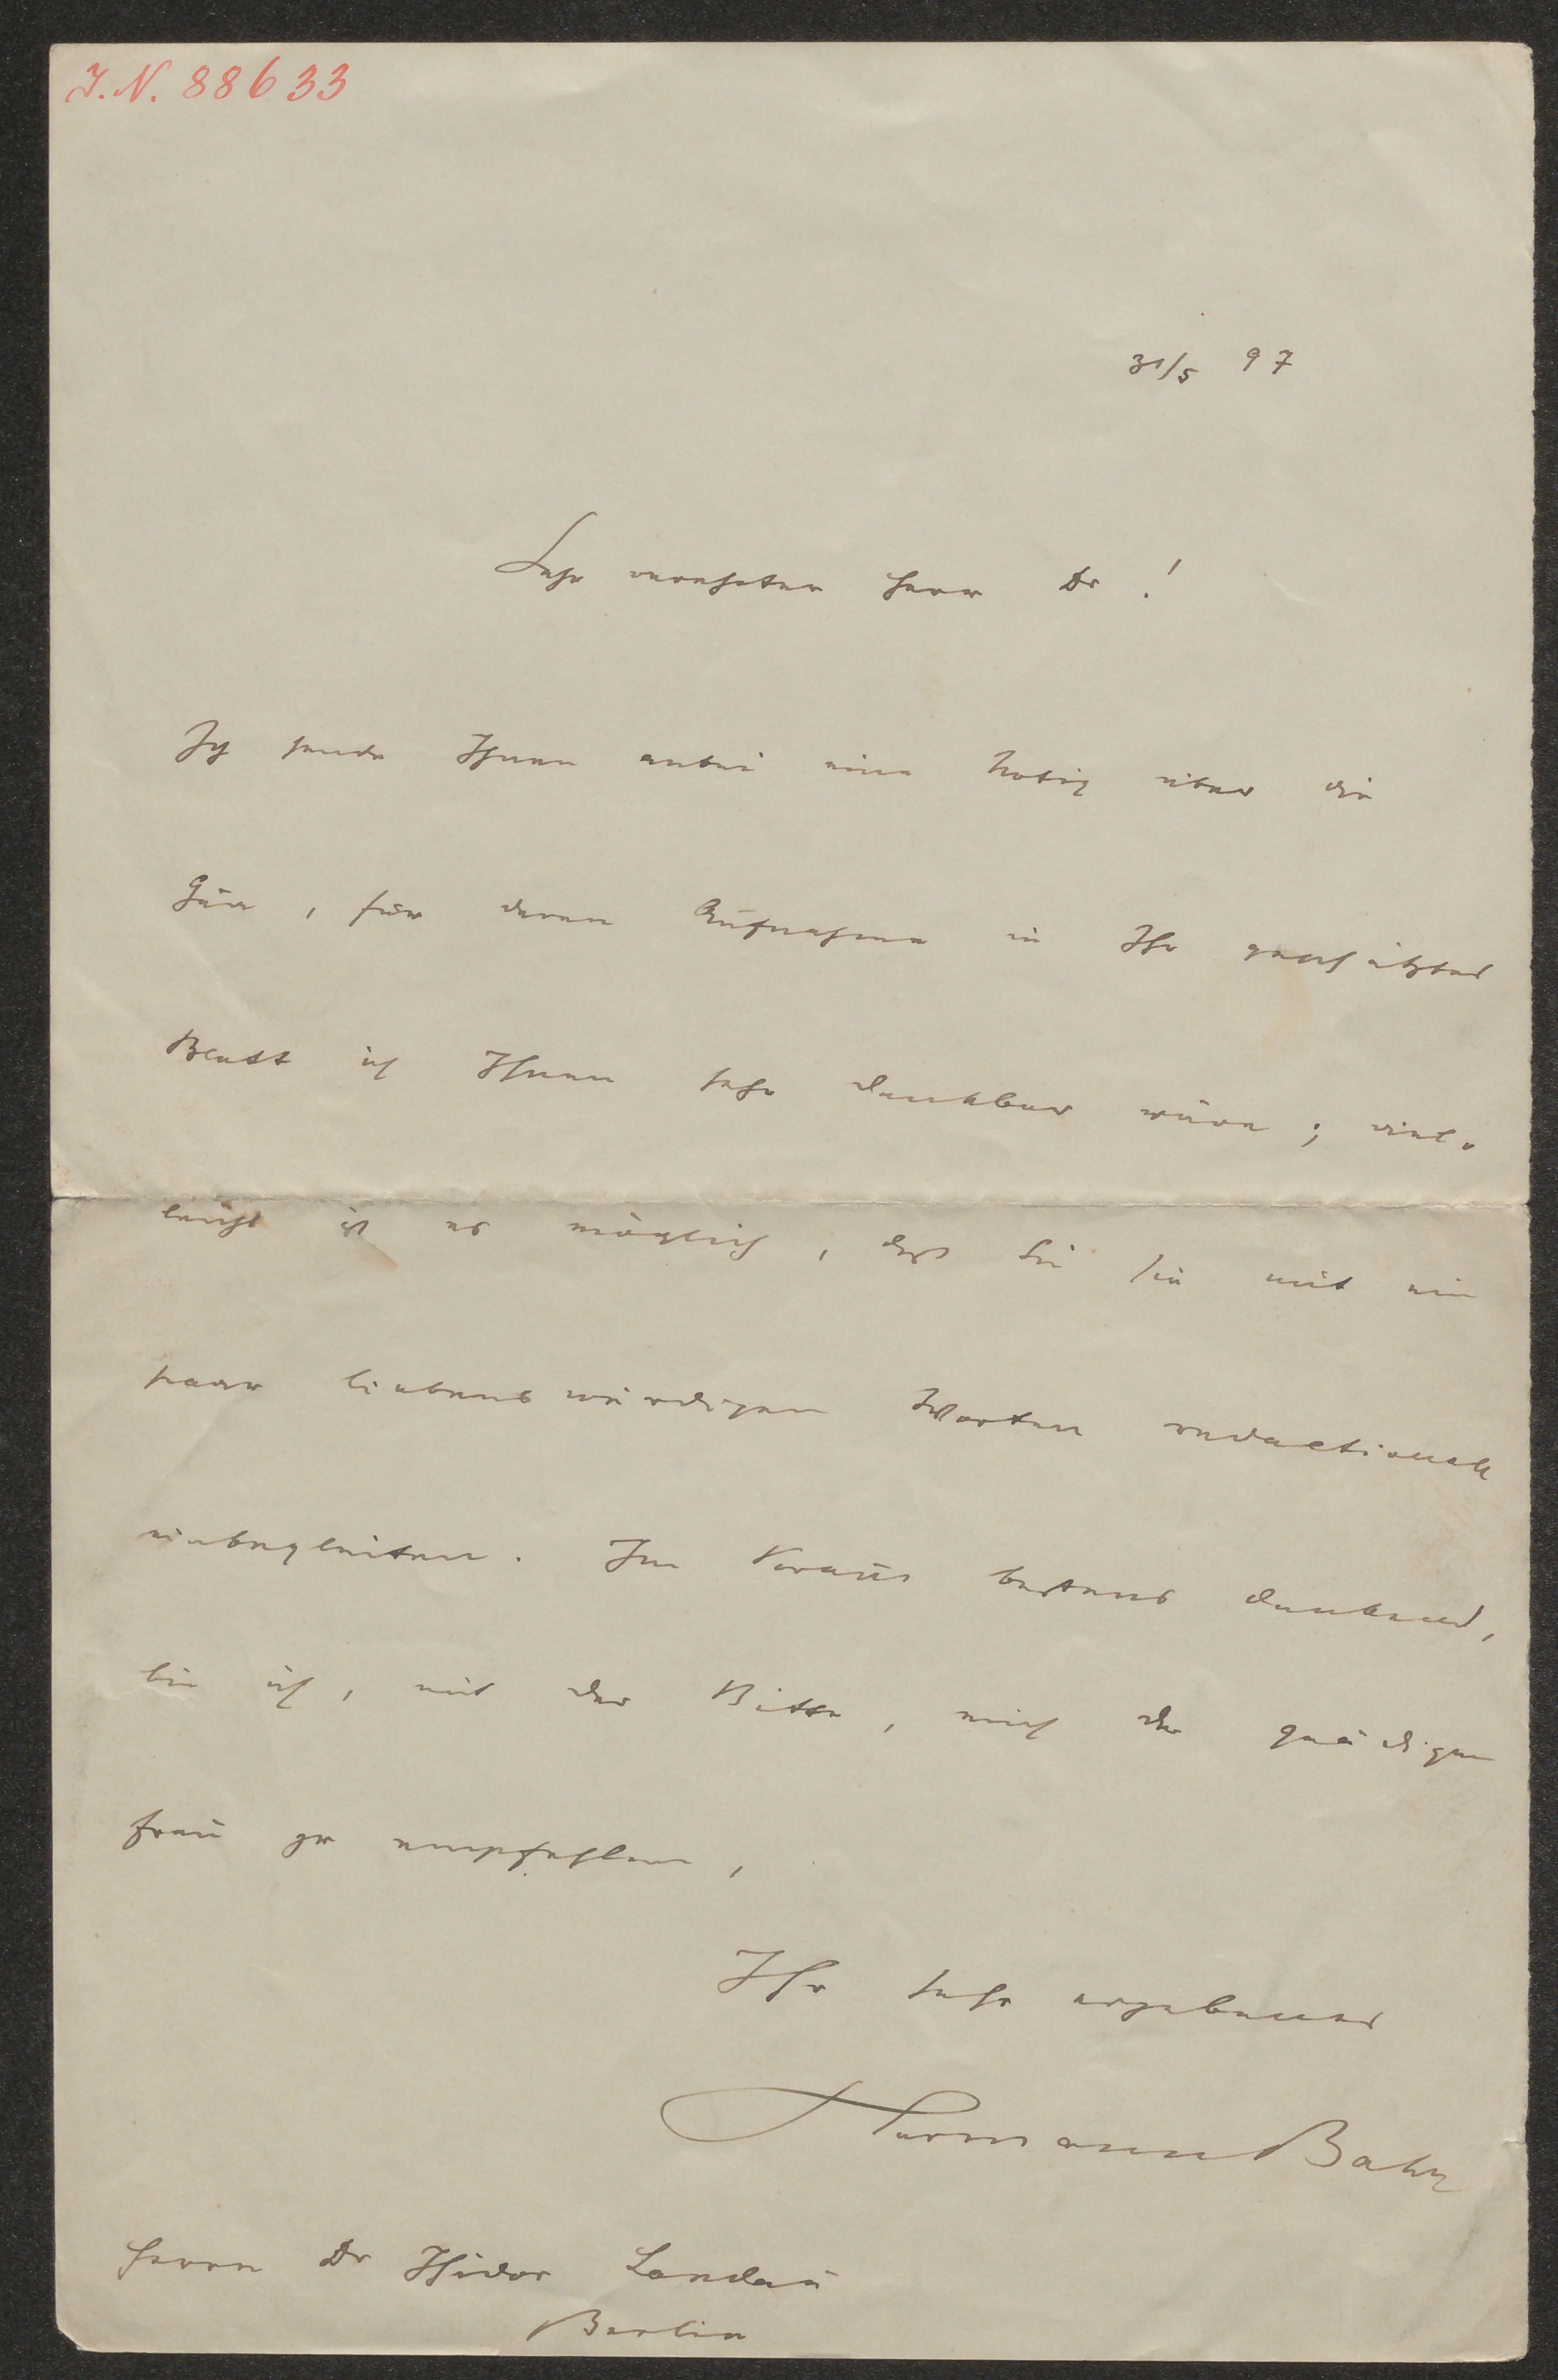 J. N. 88633
31/5 97
Sehr verehrter Herr Dr!
Ich sende Ihnen anbei eine Notiz über die
, für deren Aufnahme in Ihr geschätztes
Blatt ich Ihnen sehr dankbar wäre; viel-
leicht ist es möglich, daß Sie sie mit ein
paar liebenswürdigen Worten redactionell
einbegleiten. Im Voraus bestens dankend,
bin ich, mit der Bitte, mich der gnädigen
Frau zu empfehlen,
Ihr sehr ergebener
Hermann Bahr
Herrn Dr Isidor Landau
Berlin